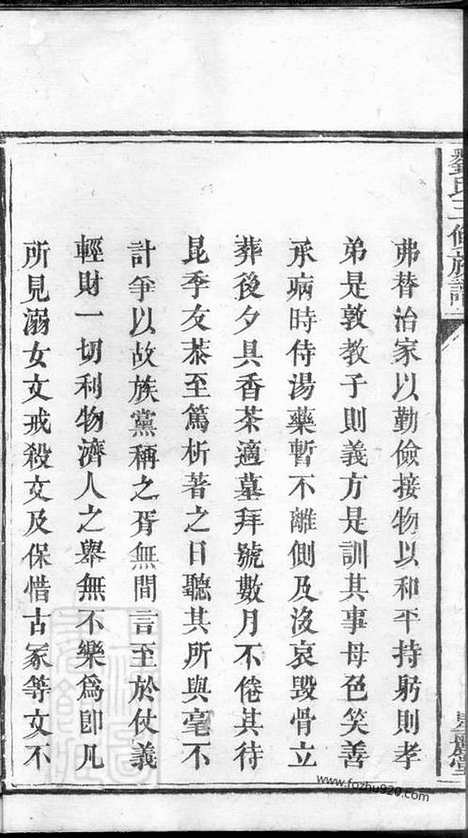 劉氏三修族譜
弗替治家以勤儉接物以和平持躬則孝
弟是敦教子則義方是訓其事母色笑善
承病時侍湯藥暫不離側及沒哀毀骨立
葬後夕具香茶適墓拜號數月不倦其待
昆季友恭至篤析著之日聽其所與毫不
計爭以故族黨稱之胥無間言至於仗義
輕財一切利物濟人之舉無不樂為即凡
所見溺女文戒殺文及保惜古冢等文不
www.fozhu920.com